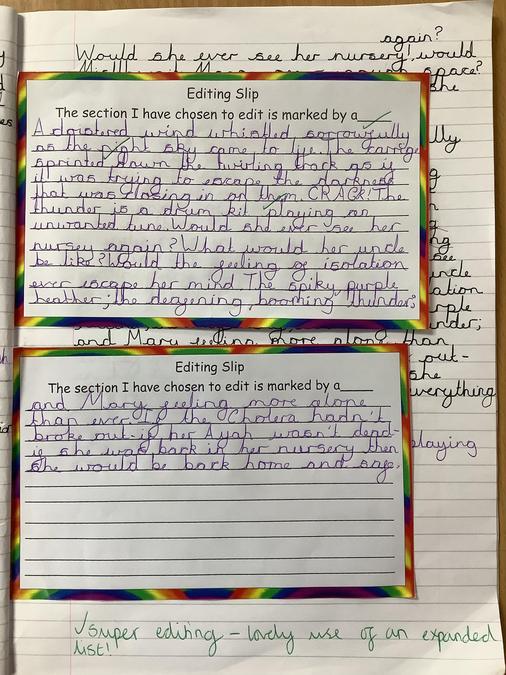 again?
Would she ever see her nursery! would
space?
she
Editing Slip
The section I have chosen to edit is marked by a
A cloistered wind whistled sorrowfully
as the night sky came to life. The carrige
sprinted down the twirling track as if
it was trying to escape the darkness
that was closing in on them. CRACK! The
thunder is a drum kit playing an
unwanted tune. Would she ever see her
nursey again? What would her uncle
be like? Would the feeling of isolation
ever escape her mind. The spiky purple
heather; the deafening, booming thunder;
and Mary feeling more alone than
out-
she
everything
playing
Editing Slip
The section I have chosen to edit is marked by a____
and Mary feeling more alone
than ever. If the Cholera hadn't
broke out-if her Ayah wasn't dead-
if she was back in her nursery then
she would be back home and safe.
✓super editing - lovely use of an expanded
list!